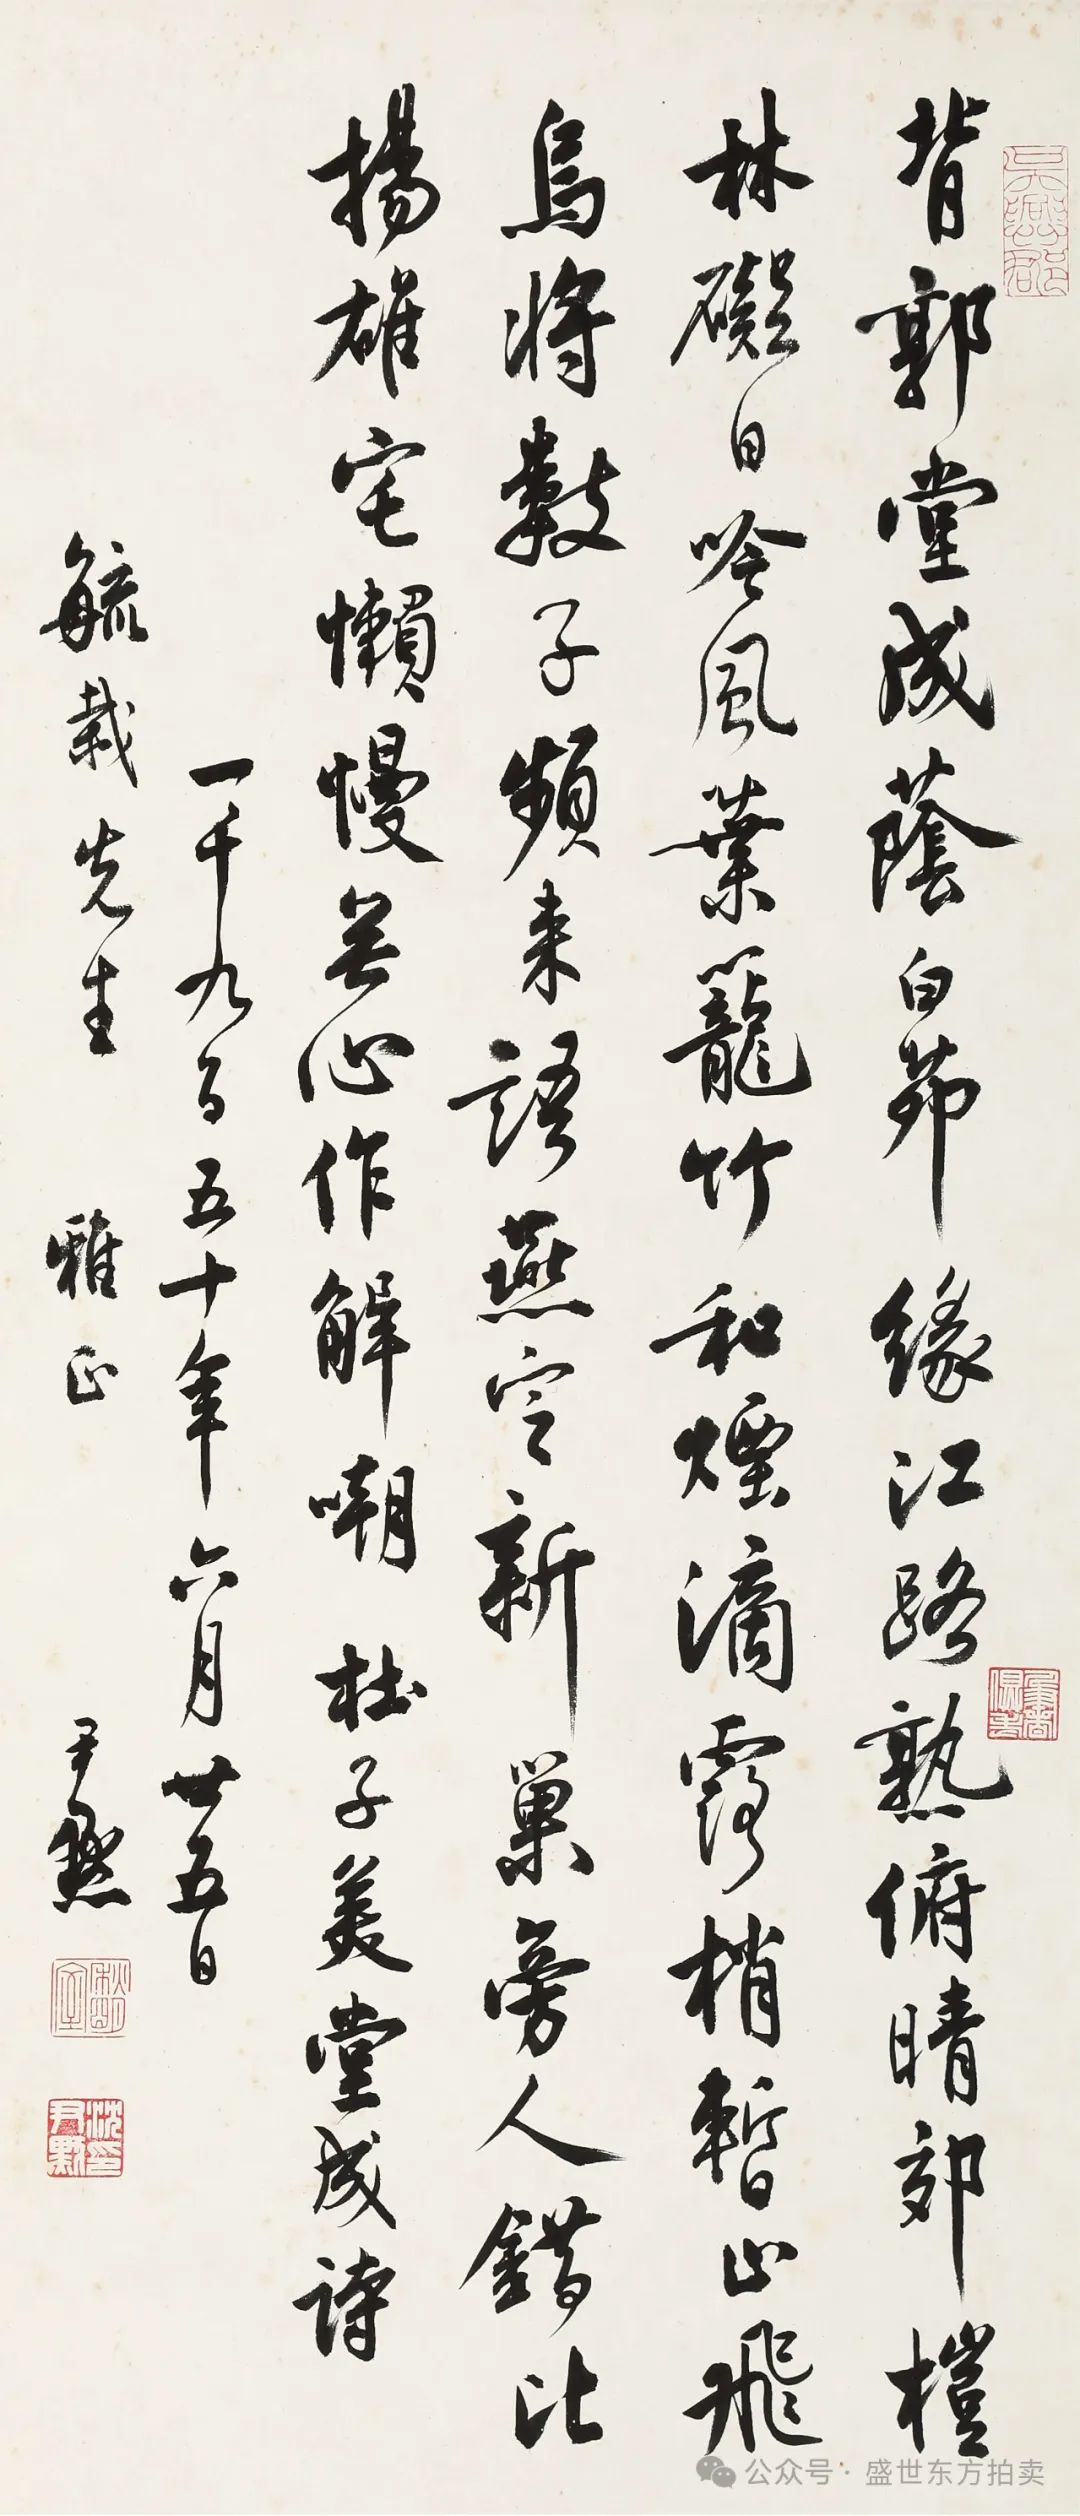 背郭堂成蔭白茅緣江路熟俯晴郊榿
林礙日吟風葉籠竹和煙滴露梢暫止飛
烏將數子頻來語燕定新巢旁人錯比
揚雄宅懶慢無心作解嘲 杜子美堂成詩
一千九百五十年六月廿五日
毓栽先生 雅正 尹默
秋明室
沈印尹默
公众号·盛世东方拍卖